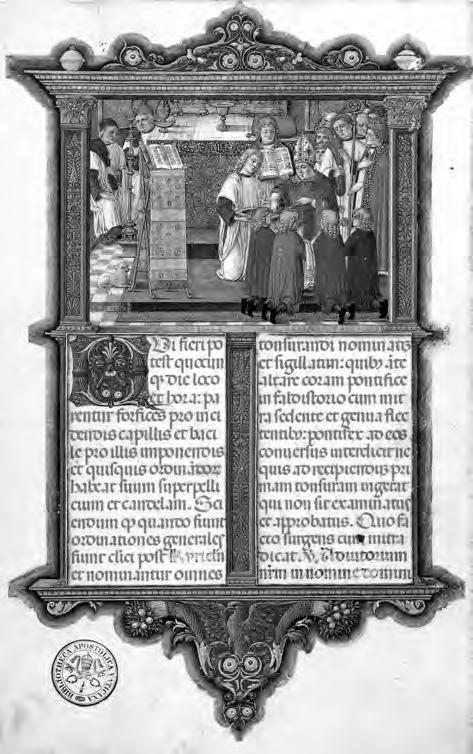 fieri po
test quocum
q; die loco
et hora: pa
rentur forfices pro inci
dendis capillis et baci
le pro illis imponendis
et quisquis ordinandor
habeat suum superpelli
cium et candelam. Sci
endum q quando fiunt
ordinationes generales
fiunt clici post Kyriel
et nominantur omnes
tonsurandi nominatis
et sigillatim: quibus ante
altare coram pontifice
in faldistorio cum mit
ra sedente et genua flec
tentibus: pontifex ad eos
conversus interdicit ne
quis ad recipiendus pri
mam tonsuram ingerat
qui non sit examinatus
et approbatus. Quo fa
cto surgens cum mitra
dicat. Adiutorium
nrm in nomine domini
BIBLIOTHECA APOSTOLICA VATICANA